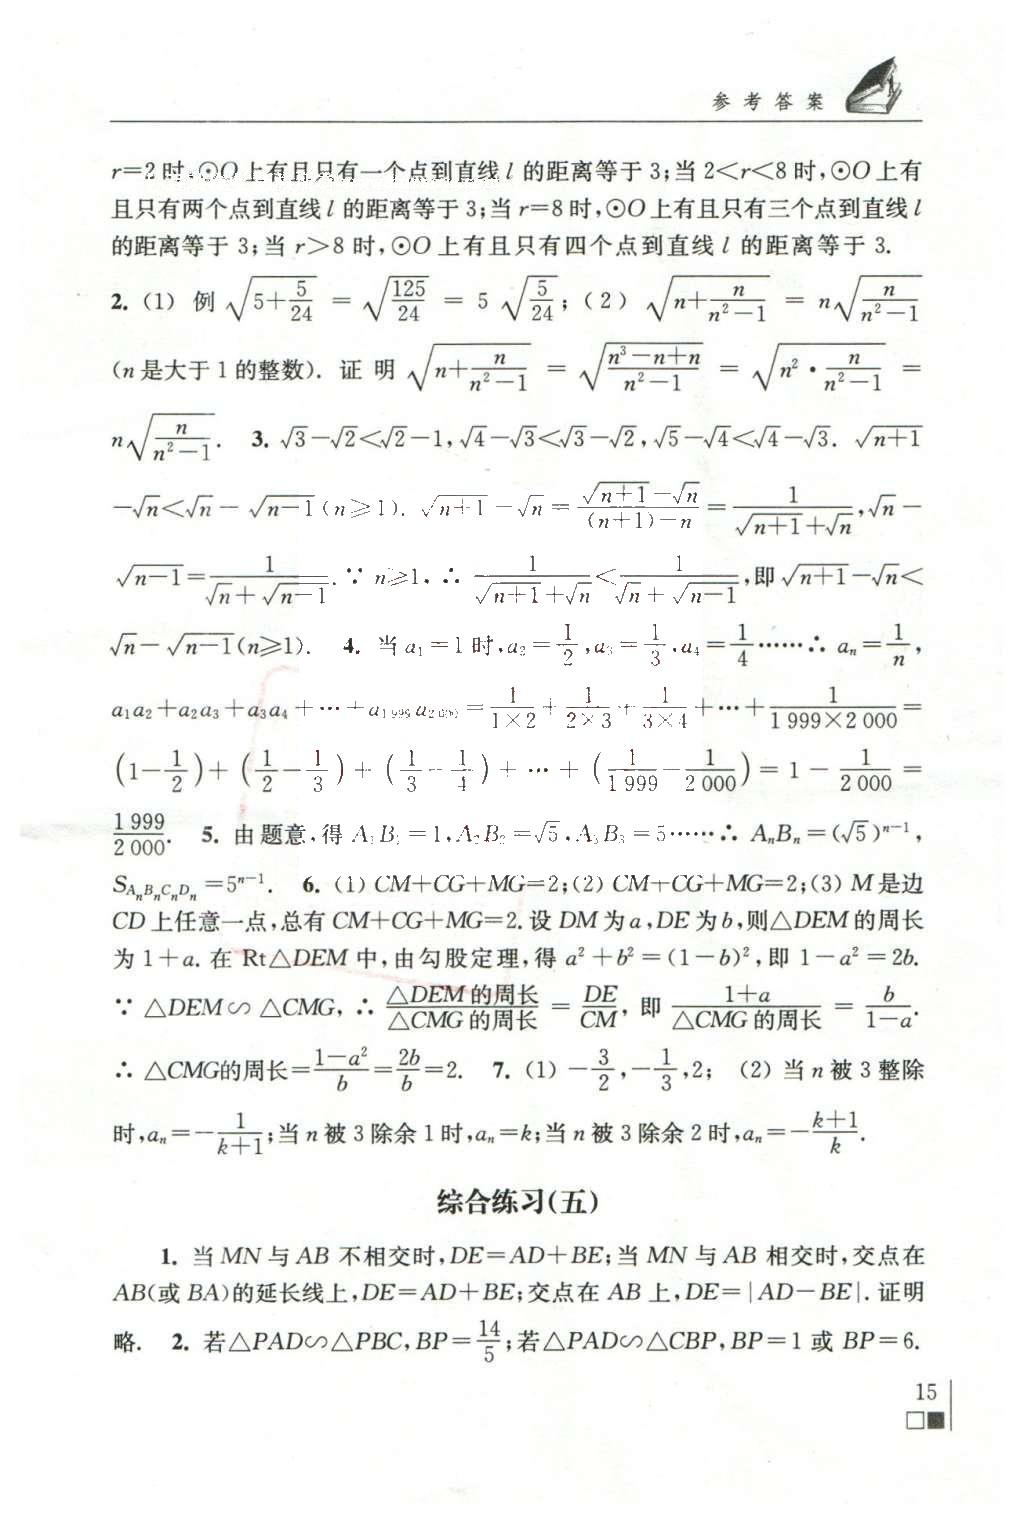 参考答案
r=2时,⊙O上有且只有一个点到直线l的距离等于3;当2<r<8时,⊙O上有
且只有两个点到直线l的距离等于3;当r=8时,⊙O上有且只有三个点到直线l
的距离等于3;当r>8时,⊙O上有且只有四个点到直线l的距离等于3.
2. (1) 例 √(5+5/24) = √(125/24) = 5√(5/24); (2) √(n+n/(n²-1)) = n√(n/(n²-1))
(n是大于1的整数). 证明 √(n+n/(n²-1)) = √((n³-n+n)/(n²-1)) = √(n²·n/(n²-1)) =
n√(n/(n²-1)). 3. √3-√2<√2-1,√4-√3<√3-√2,√5-√4<√4-√3. √(n+1)
-√n<√n-√(n-1)(n≥1). √(n+1)-√n=(√(n+1)-√n)/((n+1)-n)=1/(√(n+1)+√n),√n-
√(n-1)=1/(√n+√(n-1)).∵ n≥1,∴ 1/(√(n+1)+√n)<1/(√n+√(n-1)),即√(n+1)-√n<
√n-√(n-1)(n≥1). 4. 当a₁=1时,a₂=1/2,a₃=1/3,a₄=1/4……∴ aₙ=1/n,
a₁a₂+a₂a₃+a₃a₄+…+a₁₉₉₉a₂₀₀₀=1/(1×2)+1/(2×3)+1/(3×4)+…+1/(1 999×2 000)=
(1-1/2)+(1/2-1/3)+(1/3-1/4)+…+(1/1 999-1/2 000)=1-1/2 000=
1 999/2 000. 5. 由题意,得A₁B₁=1,A₂B₂=√5,A₃B₃=5……∴ AₙBₙ=(√5)ⁿ⁻¹,
S_{AₙBₙCₙDₙ}=5ⁿ⁻¹. 6. (1) CM+CG+MG=2;(2) CM+CG+MG=2;(3) M是边
CD上任意一点,总有CM+CG+MG=2.设DM为a,DE为b,则△DEM的周长
为1+a.在Rt△DEM中,由勾股定理,得a²+b²=(1-b)²,即1-a²=2b.
∵ △DEM∽△CMG,∴ △DEM的周长/△CMG的周长=DE/CM,即(1+a)/△CMG的周长=b/(1-a).
∴ △CMG的周长=(1-a²)/b=2b/b=2. 7. (1) -3/2,-1/3,2; (2) 当n被3整除
时,aₙ=-1/(k+1);当n被3除余1时,aₙ=k;当n被3除余2时,aₙ=-(k+1)/k.
综合练习(五)
1. 当MN与AB不相交时,DE=AD+BE;当MN与AB相交时,交点在
AB(或BA)的延长线上,DE=AD+BE;交点在AB上,DE=|AD-BE|.证明
略. 2. 若△PAD∽△PBC,BP=14/5;若△PAD∽△CBP,BP=1或BP=6.
15